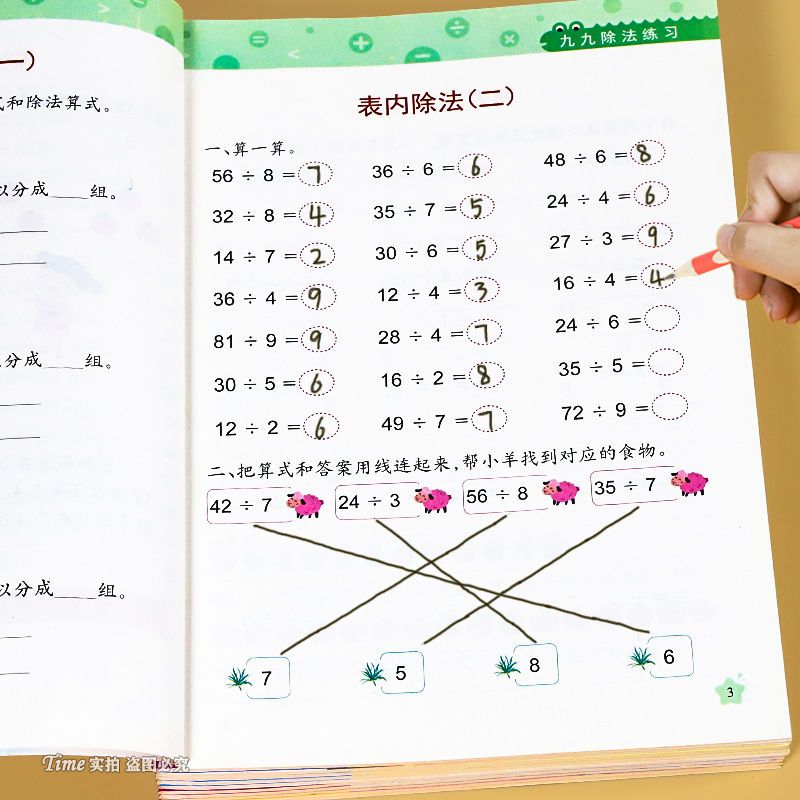 一）
式和除法算式。
以分成____组。
分成____组。
以分成____组。
九九除法练习
表内除法（二）
一、算一算。
56 ÷ 8 = 7 36 ÷ 6 = 6 48 ÷ 6 = 8
32 ÷ 8 = 4 35 ÷ 7 = 5 24 ÷ 4 = 6
14 ÷ 7 = 2 30 ÷ 6 = 5 27 ÷ 3 = 9
36 ÷ 4 = 9 12 ÷ 4 = 3 16 ÷ 4 = 4
81 ÷ 9 = 9 28 ÷ 4 = 7 24 ÷ 6 =
30 ÷ 5 = 6 16 ÷ 2 = 8 35 ÷ 5 =
12 ÷ 2 = 6 49 ÷ 7 = 7 72 ÷ 9 =
二、把算式和答案用线连起来，帮小羊找到对应的食物。
42 ÷ 7 24 ÷ 3 56 ÷ 8 35 ÷ 7
7 5 8 6
3
Time 实拍 盗图必究